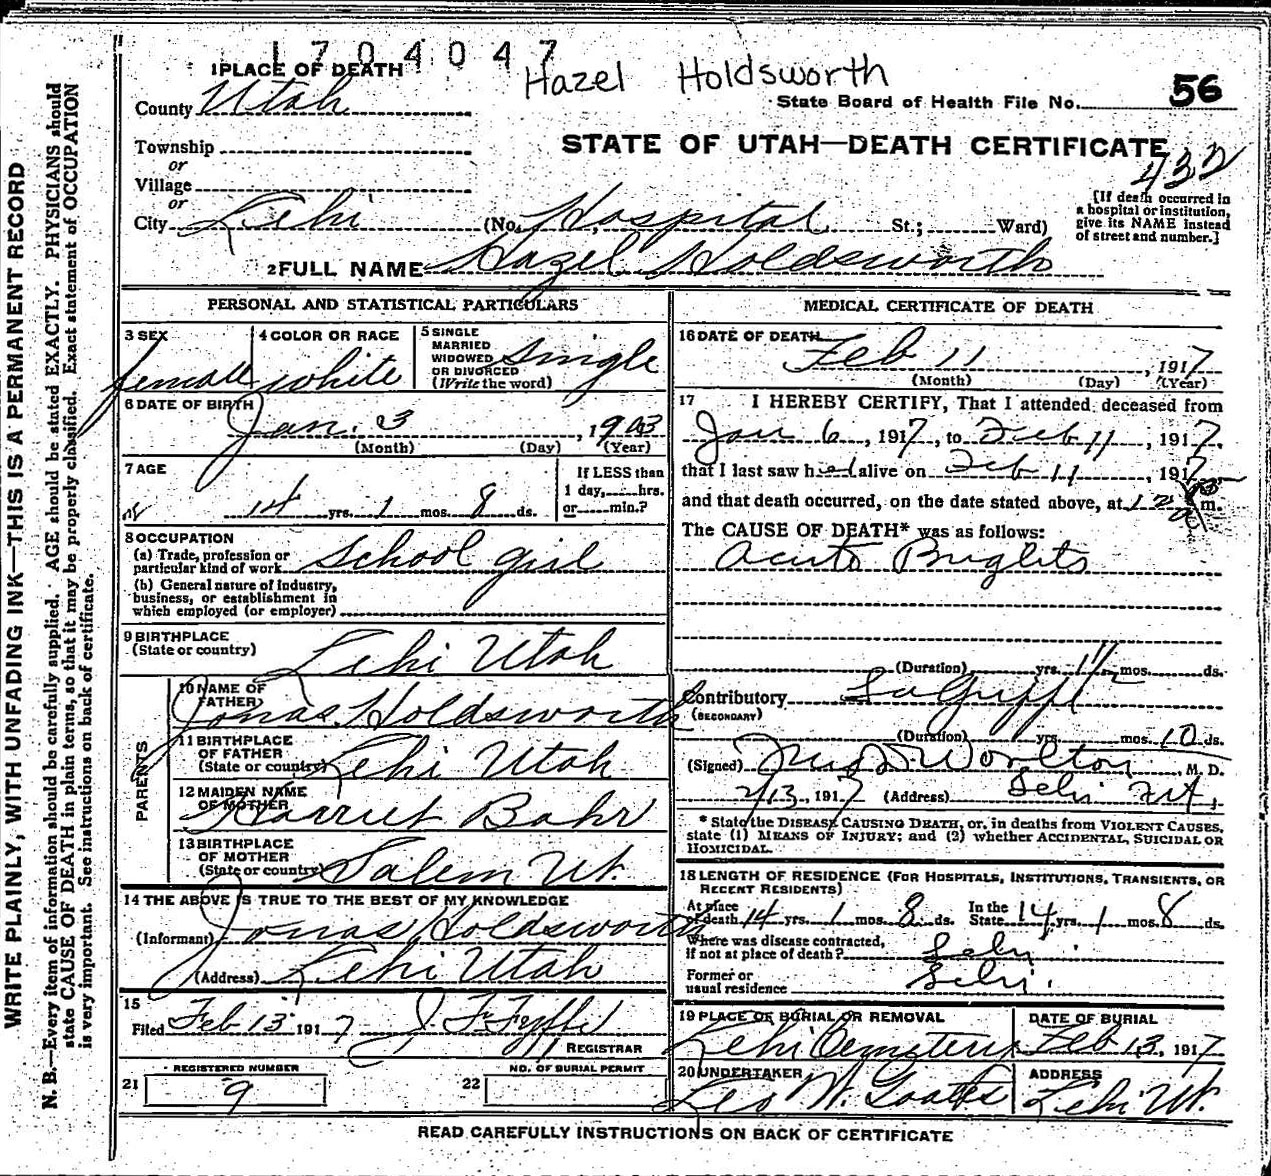 1704047
Hazel Holdsworth
56
1 PLACE OF DEATH
County Utah
State Board of Health File No.
STATE OF UTAH—DEATH CERTIFICATE
432
Township
or
Village
or
City Lehi (No. Hospital St.; Ward)
[If death occurred in a hospital or institution, give its NAME instead of street and number.]
2 FULL NAME Hazel Holdsworth
PERSONAL AND STATISTICAL PARTICULARS
3 SEX female
4 COLOR OR RACE white
5 SINGLE
MARRIED
WIDOWED
OR DIVORCED
(Write the word) Single
6 DATE OF BIRTH Jan. 3, 1903
(Month) (Day) (Year)
7 AGE
14 yrs. 1 mos. 8 ds.
If LESS than
1 day, hrs.
or min.?
8 OCCUPATION
(a) Trade, profession or
particular kind of work School girl
(b) General nature of industry,
business, or establishment in
which employed (or employer)
9 BIRTHPLACE
(State or country) Lehi Utah
PARENTS
10 NAME OF
FATHER Jonas Holdsworth
11 BIRTHPLACE
OF FATHER
(State or country) Lehi Utah
12 MAIDEN NAME
OF MOTHER Harriet Bahr
13 BIRTHPLACE
OF MOTHER
(State or country) Salem Ut.
14 THE ABOVE IS TRUE TO THE BEST OF MY KNOWLEDGE
(Informant) Jonas Holdsworth
(Address) Lehi Utah
15
Filed Feb 13 1917 J. F. Fyffe
REGISTRAR
REGISTERED NUMBER
21 9
NO. OF BURIAL PERMIT
22
MEDICAL CERTIFICATE OF DEATH
16 DATE OF DEATH
Feb 11, 1917
(Month) (Day) (Year)
17 I HEREBY CERTIFY, That I attended deceased from
Jan 6, 1917, to Feb 11, 1917,
that I last saw h alive on Feb 11, 1917
and that death occurred, on the date stated above, at m.
The CAUSE OF DEATH* was as follows:
Acute Brights
(Duration) yrs. 1½ mos. ds.
Contributory LaGrippe
(SECONDARY)
(Duration) yrs. mos. 10 ds.
(Signed) Worlton, M. D.
2/13, 1917 (Address) Lehi Ut.
* State the DISEASE CAUSING DEATH, or, in deaths from VIOLENT CAUSES,
state (1) MEANS OF INJURY; and (2) whether ACCIDENTAL, SUICIDAL OR
HOMICIDAL.
18 LENGTH OF RESIDENCE (FOR HOSPITALS, INSTITUTIONS, TRANSIENTS, OR
RECENT RESIDENTS)
At place
of death 14 yrs. 1 mos. 8 ds. In the
State 14 yrs. 1 mos. 8 ds.
Where was disease contracted,
if not at place of death? Lehi.
Former or
usual residence Lehi.
19 PLACE OF BURIAL OR REMOVAL
Lehi Cemetery
DATE OF BURIAL
Feb 13, 1917
20 UNDERTAKER
Leo W. Goates
ADDRESS
Lehi Ut.
READ CAREFULLY INSTRUCTIONS ON BACK OF CERTIFICATE
WRITE PLAINLY, WITH UNFADING INK—THIS IS A PERMANENT RECORD
N. B.—Every item of information should be carefully supplied. AGE should be stated EXACTLY. PHYSICIANS should
state CAUSE OF DEATH in plain terms, so that it may be properly classified. Exact statement of OCCUPATION
is very important. See instructions on back of certificate.